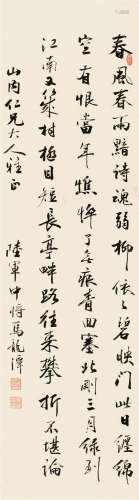 春風春雨黯詩魂弱柳依依碧映門此日纏綿
空有恨當年憔悴了無痕青回塞北剛三月綠到
江南又幾村極目短長亭畔路往來攀折不堪論
山内仁兄大人雅正
陸軍中將馬龍潭